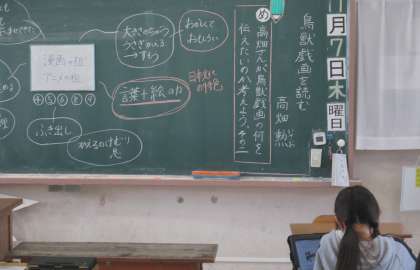 11月7日木曜
鳥獣戯画を読む
高畑 勲
め
高畑さんが鳥獣戯画の何を
伝えたいのか考えよう。その一
わかくて
おもしろい
大きさのちがう
うさぎかえる
→すもう
漫画の祖
アニメの祖
④⑤⑥⑧
言葉+絵の力
日本文化
の特色
ふき出し
かえるのけむり
息